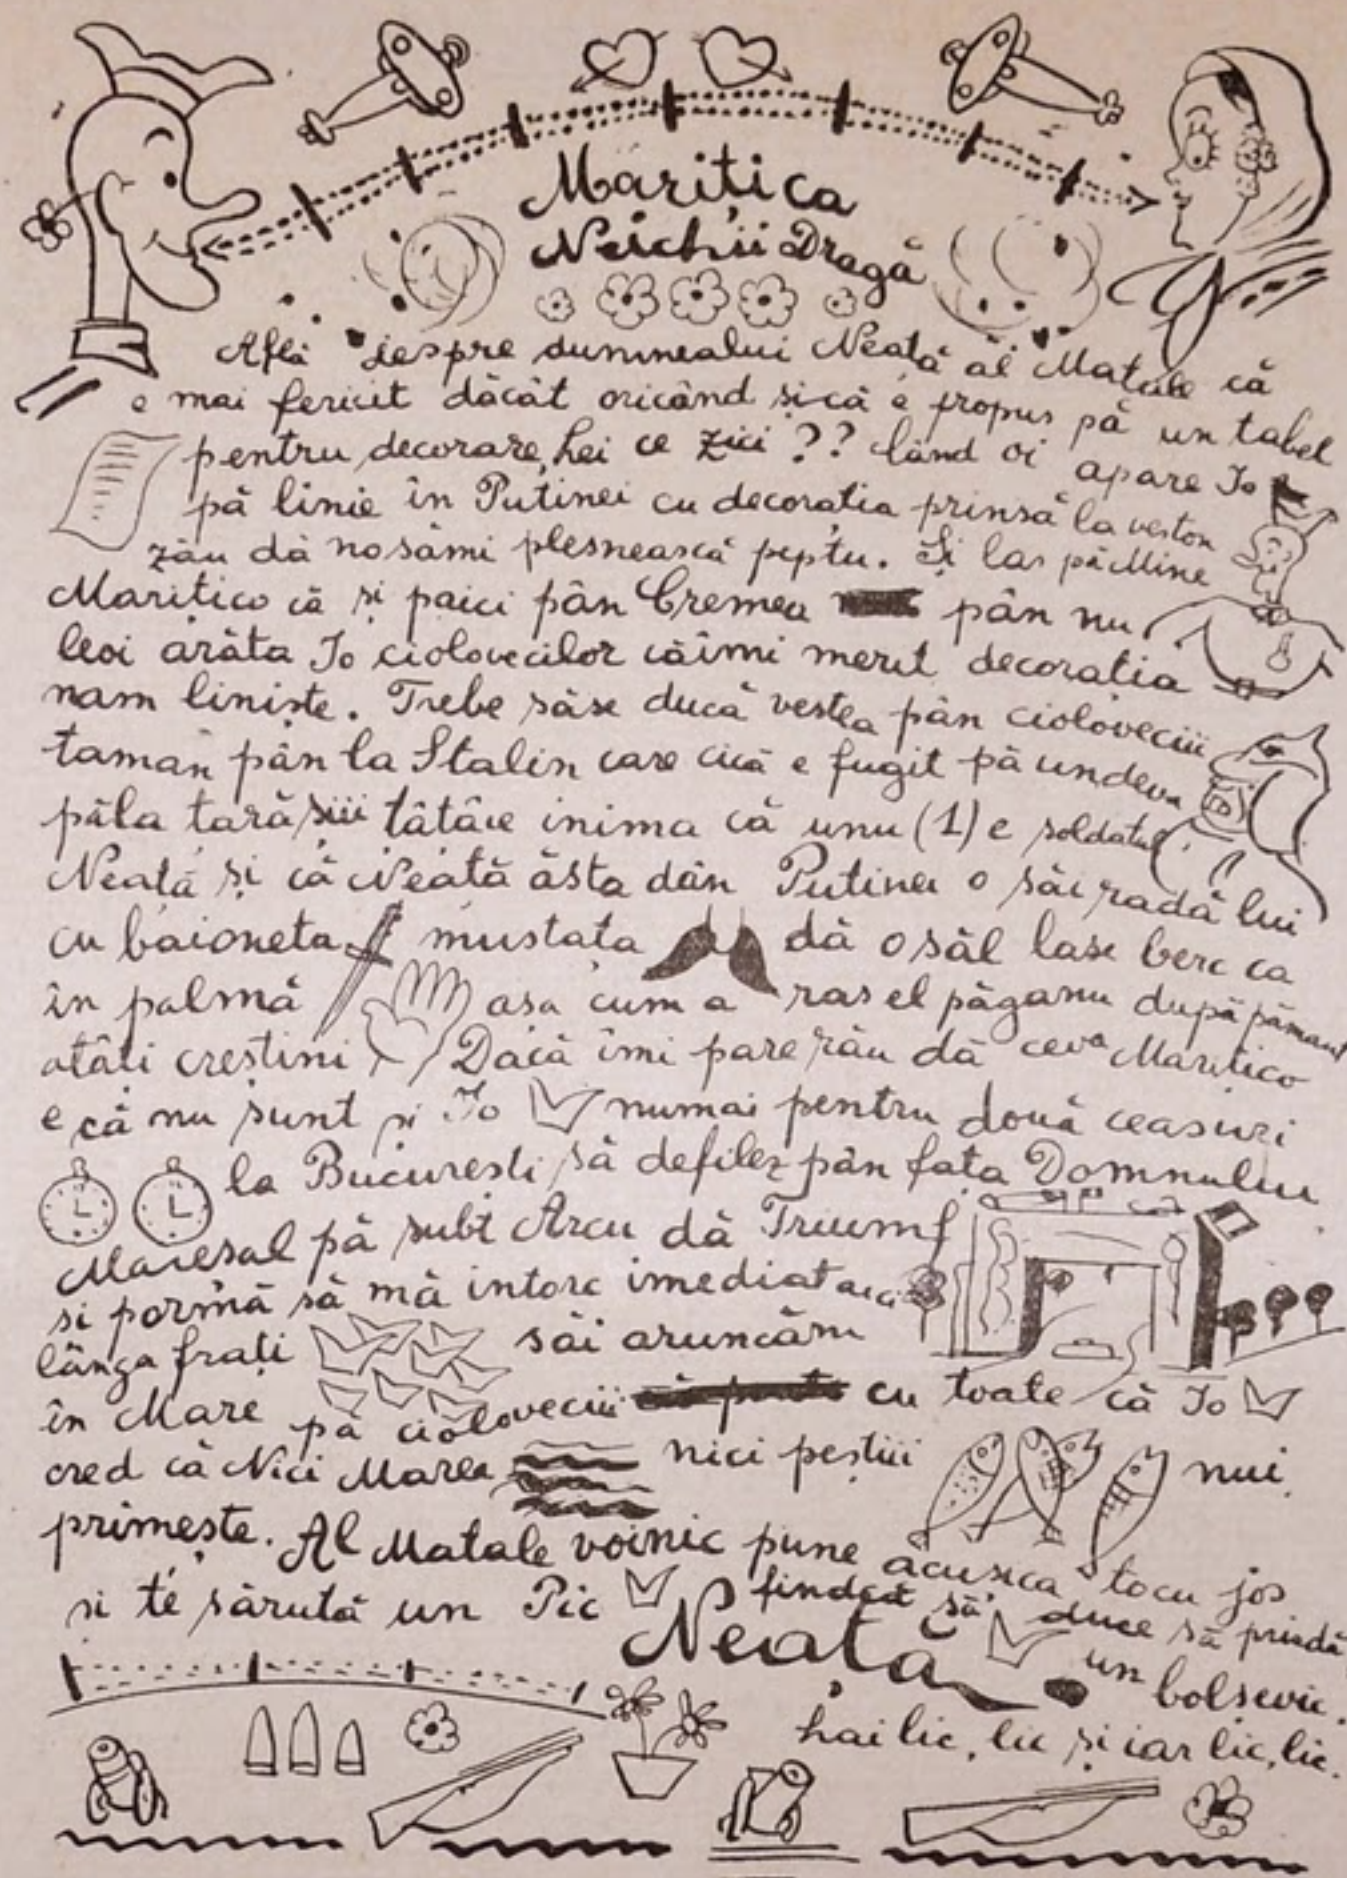 Marițica
Neichii Dragă
Află despre dumnealui Neață al Matale că
e mai fericit dăcât oricând și că e propus pă un tabel
pentru decorare, hei ce zici ?? Când oi apare Io
pă linie în Putinei cu decorația prinsă la veston
zău dă nosămi plesnească peptu. Și las pă Mine
Marițico că și paici pân Cremea pân nu
leoi arăta Io ciolovecilor căîmi merit decorația
nam liniște. Trebe săse ducă vestea pân cioloveciii
taman pân la Stalin care cică e fugit pă undeva
păla țară șiii tâtâie inima că unu (1) e soldatul
Neață și că Neață ăsta dân Putinei o săi radă lui
cu baioneta mustața dă osăl lase berc ca
în palmă așa cum a ras el păgânu după pământ
atâți creștini. Dacă îmi pare rău dă ceva Marițico
e că nu sunt și Io numai pentru două ceasuri
la București să defilez pân fața Domnului
Mareșal pă subt Arcu dă Triumf
si pormă să mă intorc imediat aici
lânga frați săi aruncăm
în Mare pă cioloveciii cu toate că Io
cred că Nici Marea nici peștiii nui
primește. Al Matale voinic pune acușica tocu jos
și te sărută un Pic findcă să duce să prindă
Neață un bolșevic.
hai lic, lic și iar lic, lic.